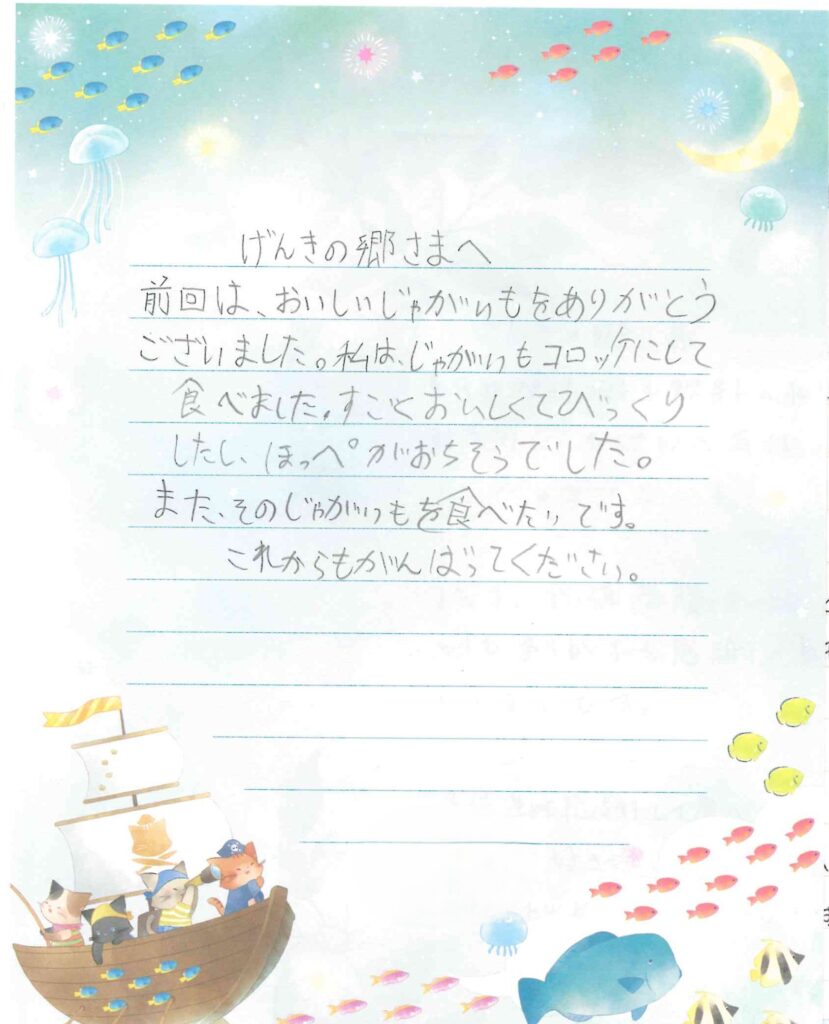 げんきの郷さまへ
前回は、おいしいじゃがいもをありがとう
ございました。私は、じゃがいもコロッケにして
食べました。すごくおいしくてびっくり
したし、ほっぺがおちそうでした。
また、そのじゃがいもを食べたいです。
これからもがんばってください。